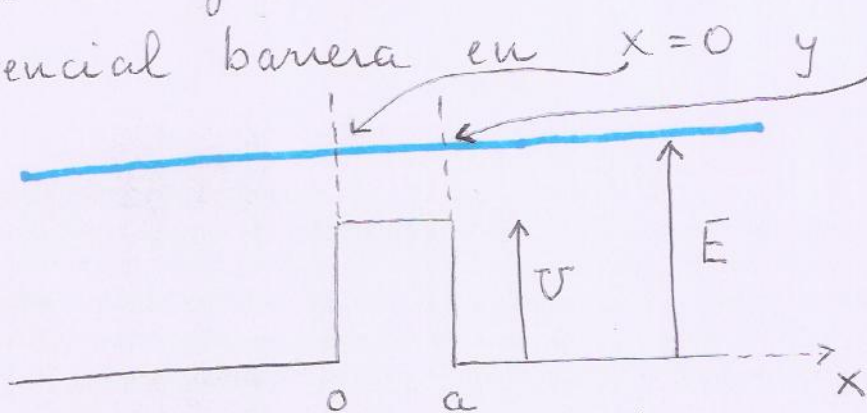 encial barrera en x = 0 y
U
E
0 a x